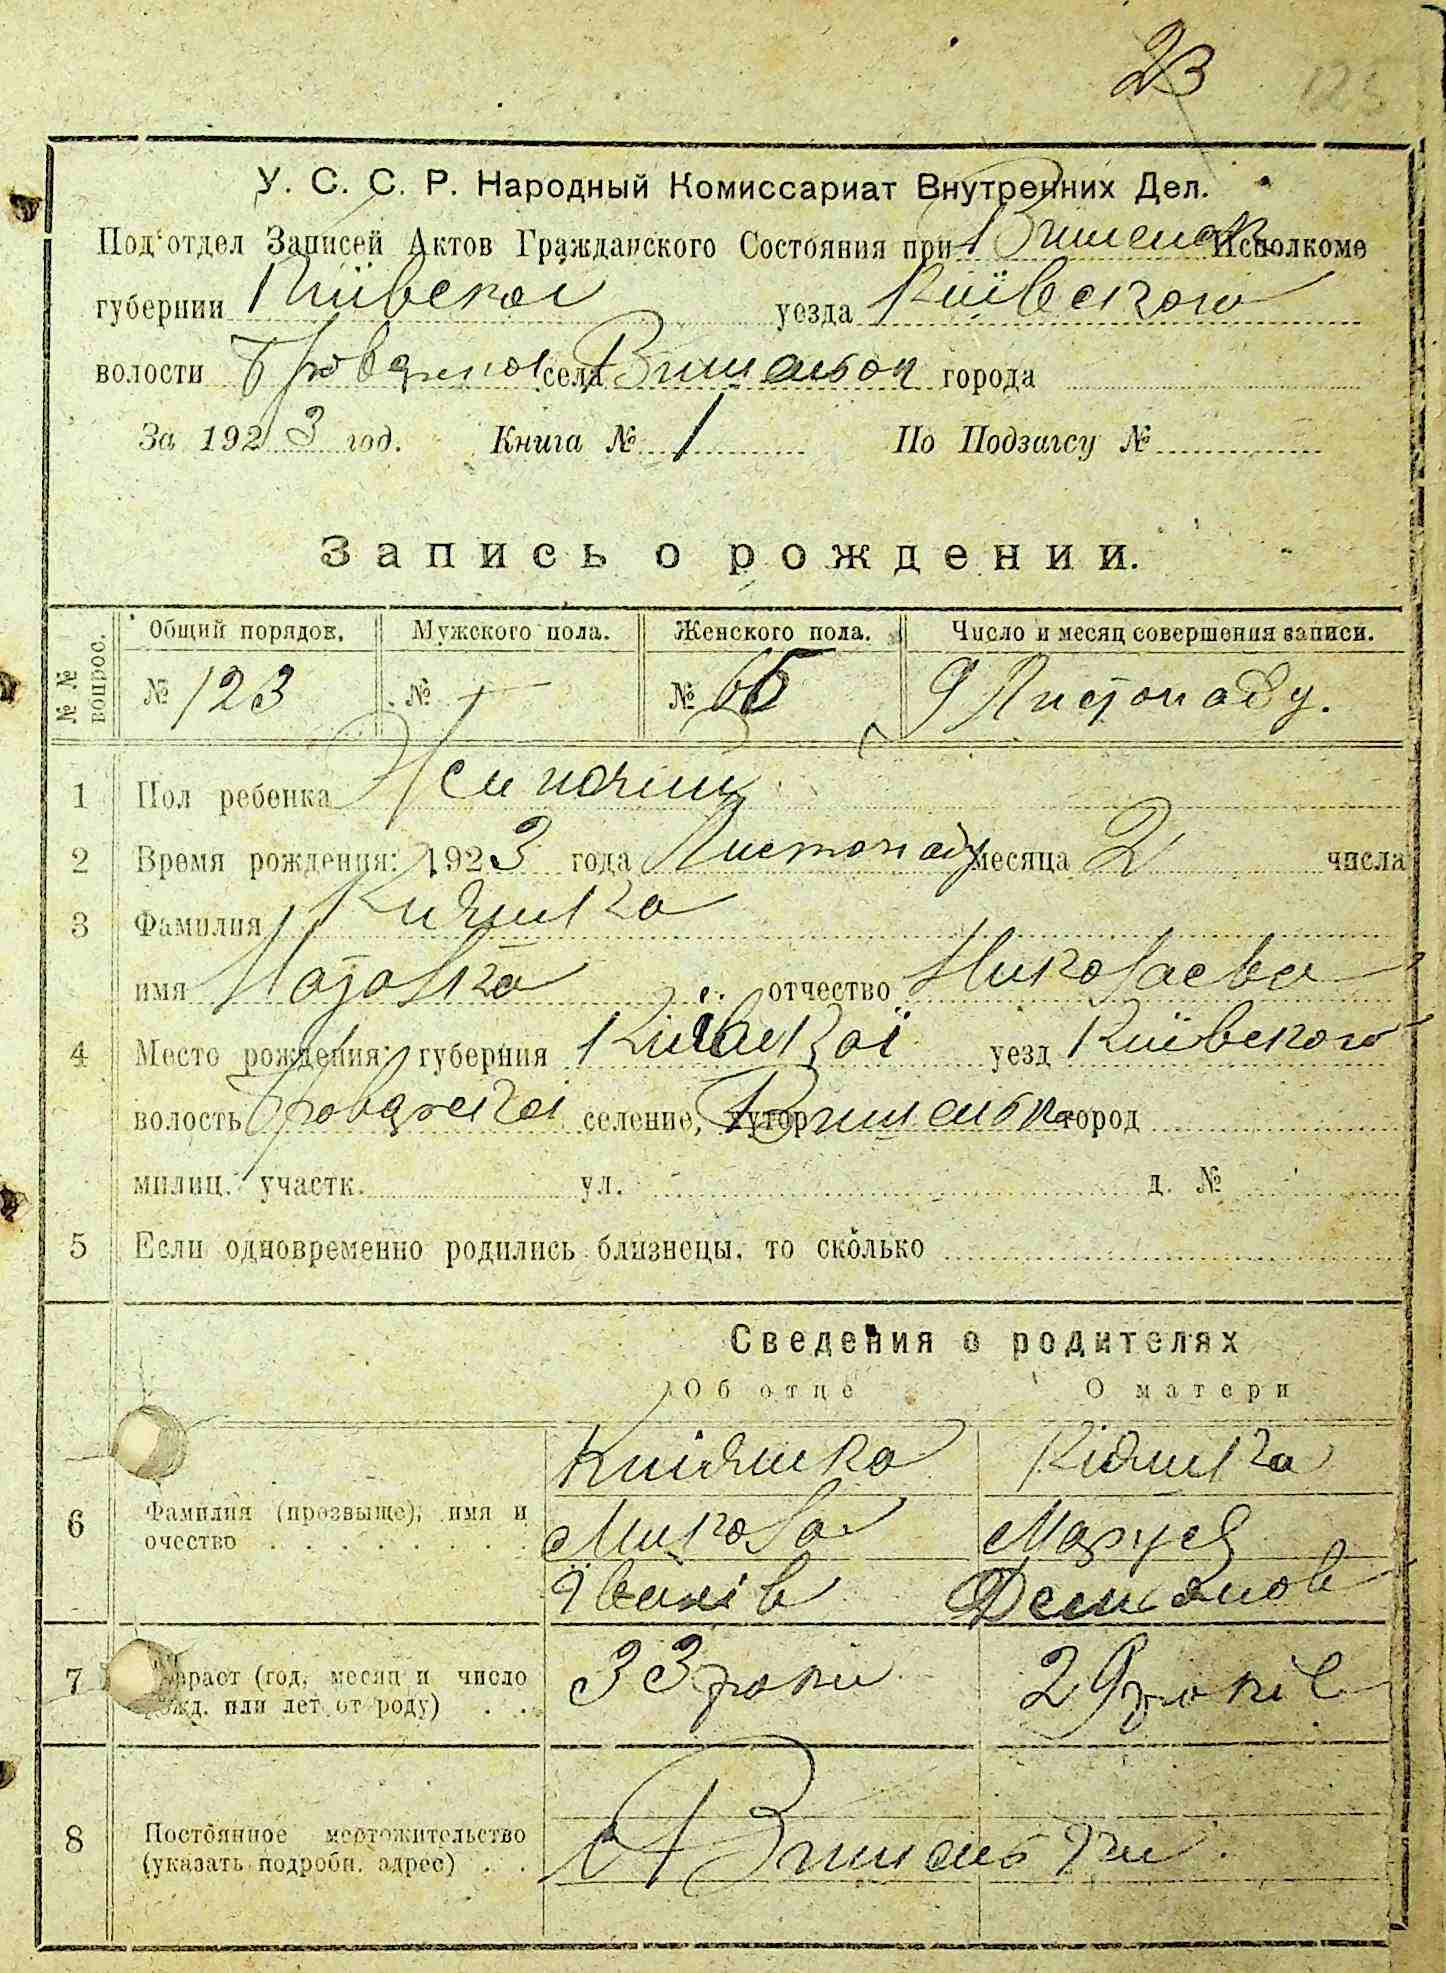 23 125
У. С. С. Р. Народный Комиссариат Внутренних Дел.
Под'отдел Записей Актов Гражданского Состояния при Вишеньск Исполкоме
губернии Київської уезда Київского
волости Броварської села Вишеньок города
За 1923 год. Книга № 1 По Подзагсу №
Запись о рождении.
№ № вопрос. Общий порядок. Мужского пола. Женского пола. Число и месяц совершения записи.
№ 123 № — № 65 9 Листопаду.
1 Пол ребенка Жиночий
2 Время рождения: 1923 года Листопаду месяца 2 числа
3 Фамилия Кияшка
имя Наталка отчество Николаева
4 Место рождения: губерния Київської уезд Київского
волость Броварської селение, хутор Вишеньки город
милиц. участк. ул. д. №
5 Если одновременно родились близнецы, то сколько
Сведения о родителях
Об отце О матери
Кияшка Кіяшка
6 Фамилия (прозвыще), имя и очество Микола Маруся
Іванів Демянов
7 Возраст (год, месяц и число рожд. или лет от роду) 33 роки 29 років
8 Постоянное местожительство (указать подробн. адрес) с. Вишеньки.